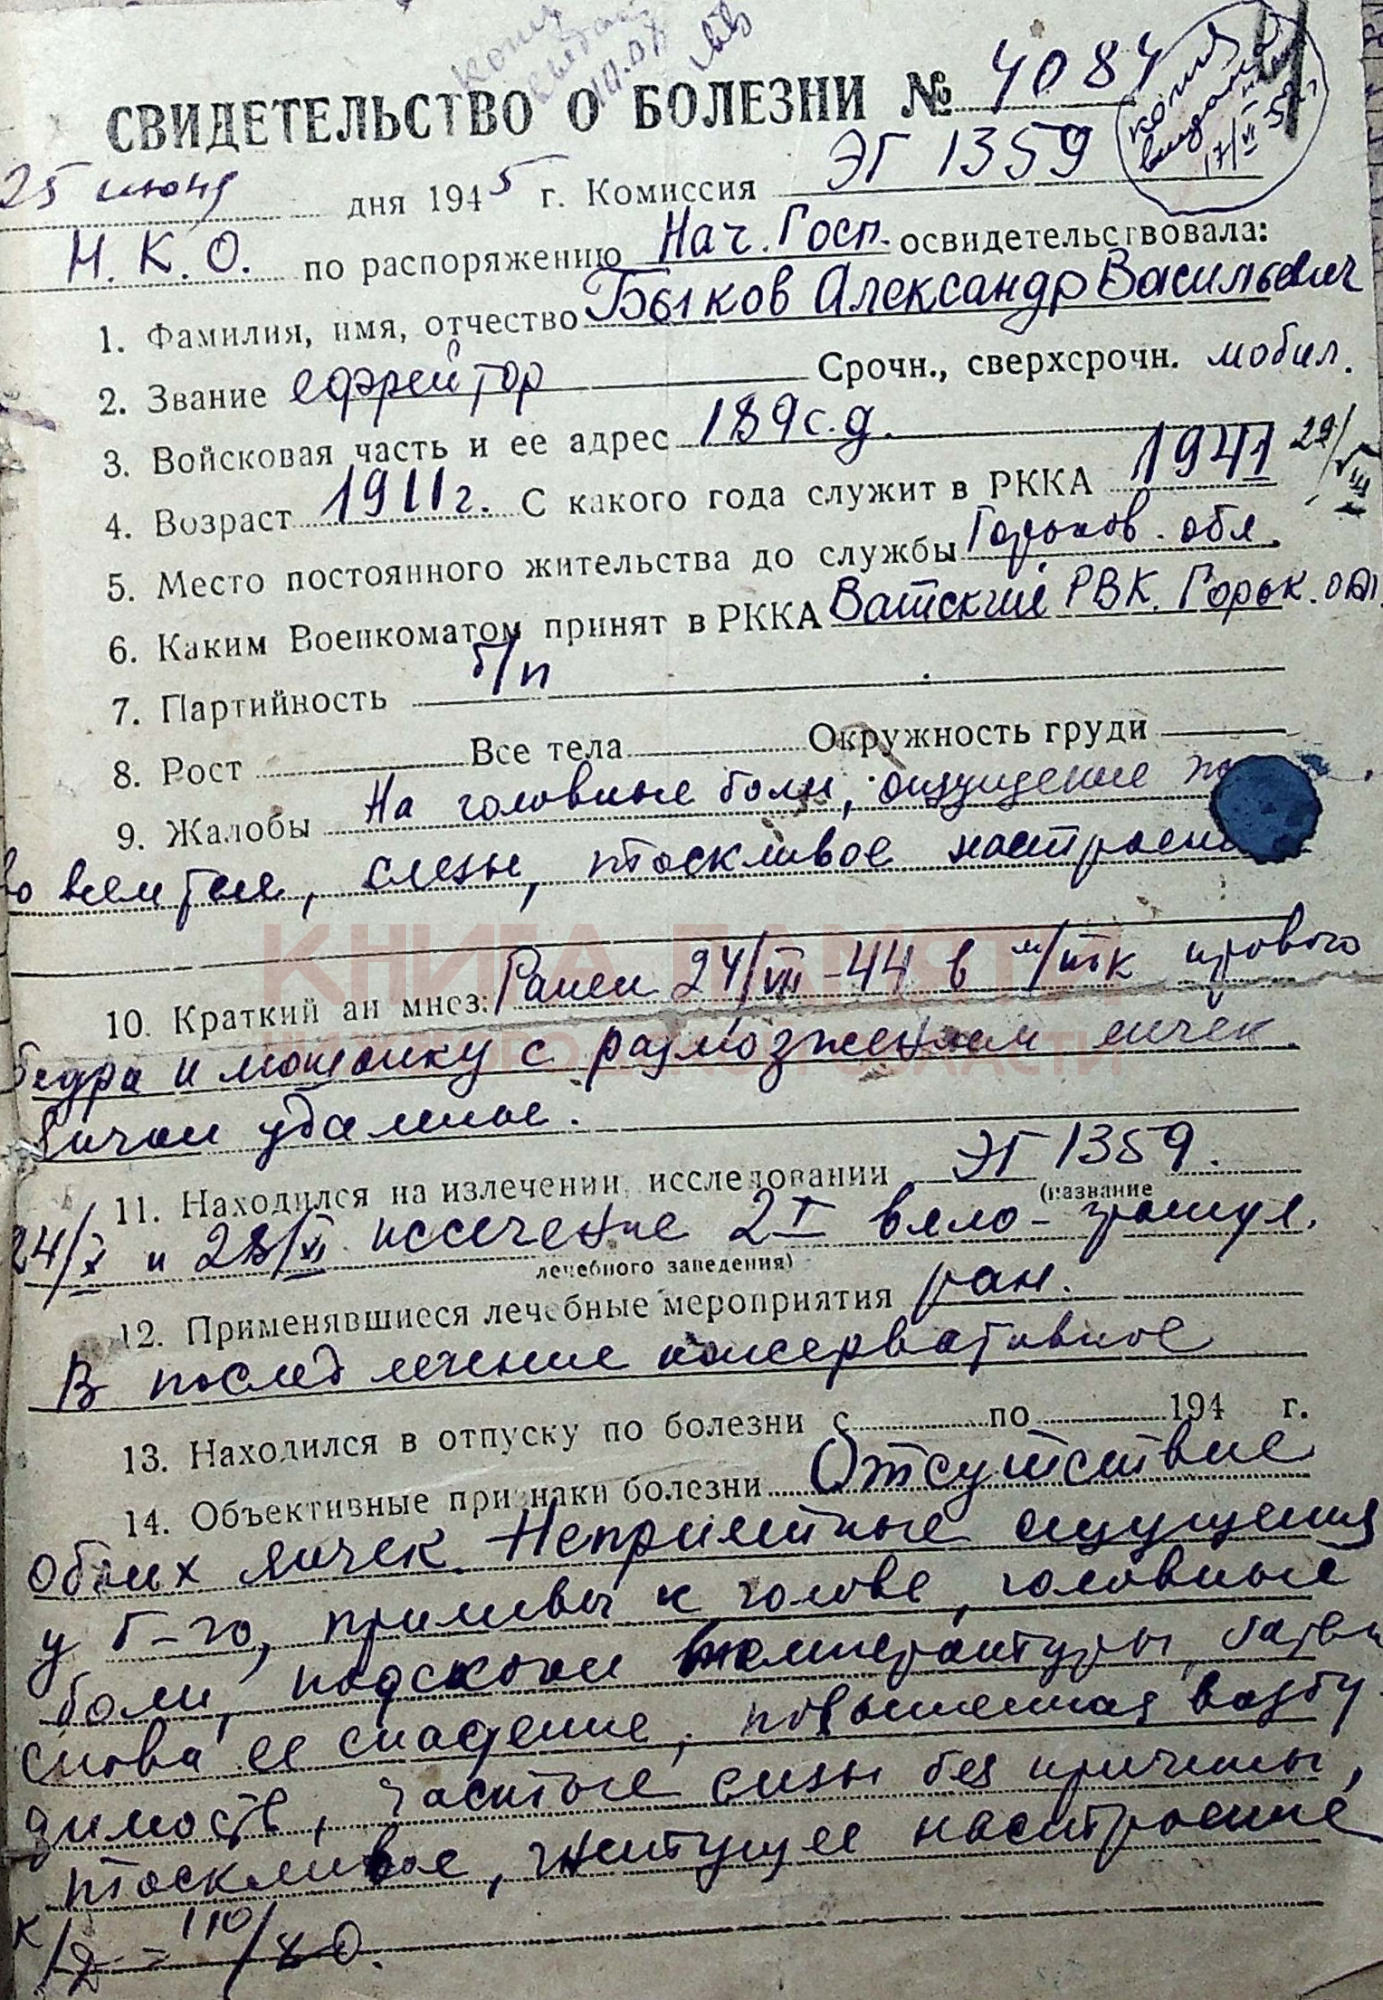 СВИДЕТЕЛЬСТВО О БОЛЕЗНИ № 4084
копия выдана 17/VI
25 июня дня 1945 г. Комиссия ЭГ 1359
Н.К.О. по распоряжению Нач. Госп. освидетельствовала:
1. Фамилия, имя, отчество Быков Александр Васильевич
2. Звание ефрейтор Срочн., сверхсрочн. мобил.
3. Войсковая часть и ее адрес 189 с.д.
4. Возраст 1911 г. С какого года служит в РККА 1941 29/VIII
5. Место постоянного жительства до службы Горьков. обл.
6. Каким Военкоматом принят в РККА Ватский РВК. Горьк. обл.
7. Партийность б/п
8. Рост Все тела Окружность груди
9. Жалобы На головные боли, ощущение
во всем теле, слезы, тоскливое настроени
КНИГА ПАМЯТИ
НИЖЕГОРОДСКОЙ ОБЛАСТИ
10. Краткий ан мнез: Ранен 24/VII-44 в м/тк правого
бедра и мошонку с размозжением яичек.
Яички удалены.
11. Находился на излечении, исследовании ЭГ 1359.
(название
24/X и 28/XI иссечение 2х вяло-гранул.
лечебного заведения)
12. Применявшиеся лечебные мероприятия ран.
В послед лечение консервативное
13. Находился в отпуску по болезни с по 194 г.
14. Объективные признаки болезни Отсутствие
обоих яичек. Неприятные ощущения
у б-го, приливы к голове, головные
боли, подскоки температуры,
снова ее спадение, повышенная возбу
димость, частые слезы без причины,
тоскливое, гнетущее настроение
К/Д = 110/80.